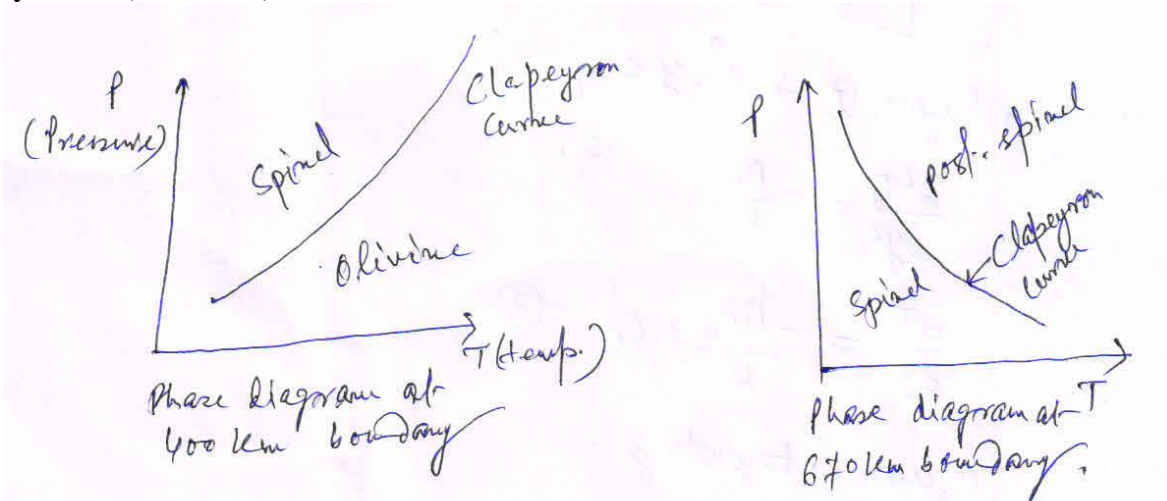 P
(Pressure)
Spinel
Olivine
Clapeyron
curve
T (temp.)
Phase diagram at
400 km boundary
P
post-spinel
Spinel
Clapeyron
curve
T
Phase diagram at
670 km boundary.